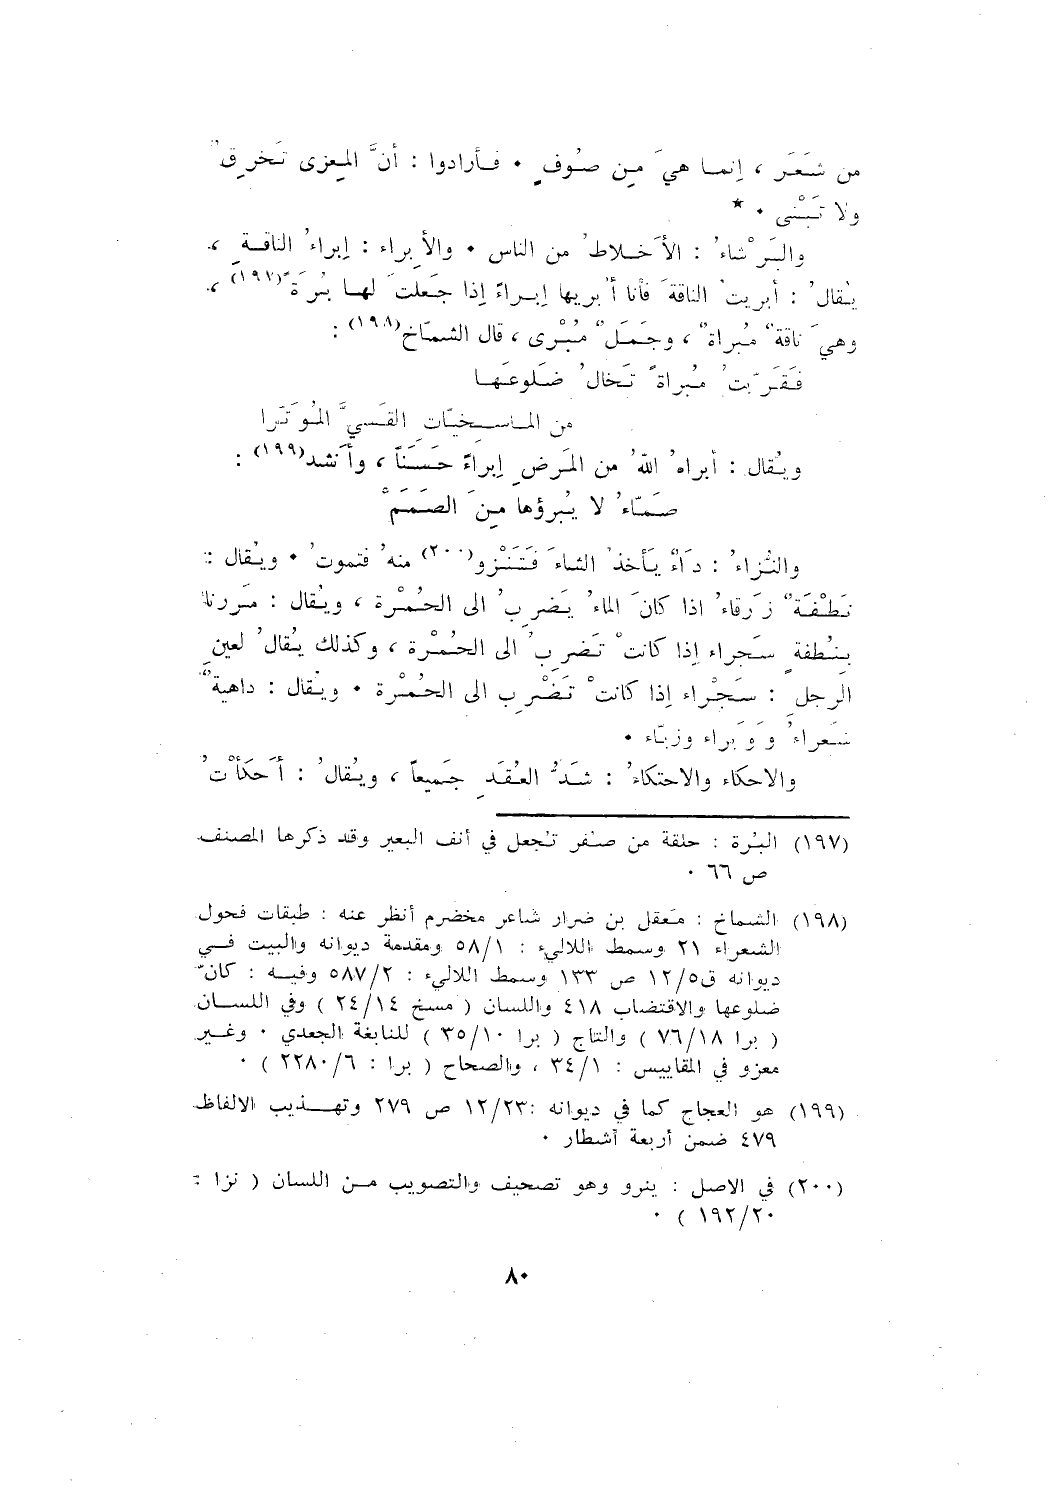 من شَعَر ، إنما هيَ مِن صُوفٍ . فأرادوا : أنَّ المِعزى تَخرِقُ
ولا تَبْنى . *
والبَرْشاءُ : الأَخلاطُ من الناس . والأِبراء : إبراءُ الناقةِ ،
يُقالُ : أبريتُ الناقةَ فأنا أُبريها إبراءً إذا جَعلتَ لها بُرَةً (١٩٧) ،
وهيَ ناقةٌ مُبراةٌ ، وجَمَلٌ مُبْرى ، قال الشمّاخ (١٩٨) :
فَقَرّبتُ مُبراةً تَخالُ ضَلوعَها
من الماسخيّاتِ القَسيَّ المُوَتّرا
ويُقال : أبراهُ اللهُ من المَرضِ إبراءً حَسَناً ، وأَنشد (١٩٩) :
صَمّاءُ لا يُبرؤها مِنَ الصَمَمْ
والنُزاءُ : دَاءٌ يَأخذُ الشاءَ فَتَنْزو (٢٠٠) منهُ فتموتُ . ويُقال :
نَطْفَةٌ زَرقاءُ اذا كانَ الماءُ يَضرِبُ الى الحُمْرة ، ويُقال : مَررنا
بنُطفةٍ سَجراء إذا كانتْ تَضرِبُ الى الحُمْرة ، وكذلك يُقالُ لعينِ
الرجلِ : سَجْراء إذا كانتْ تَضْرِب الى الحُمْرة . ويُقال : داهيةٌ
شَعراءُ وَوَبراء وزبّاء .
والاحكاء والاحتكاءُ : شَدُّ العُقَدِ جَميعاً ، ويُقالُ : أَحَكَأْتُ
(١٩٧) البُرة : حلقة من صُفر تُجعل في أنف البعير وقد ذكرها المصنف
ص ٦٦ .
(١٩٨) الشماخ : مَعقل بن ضرار شاعر مخضرم أنظر عنه : طبقات فحول
الشعراء ٢١ وسمط اللاليء : ٥٨/١ ومقدمة ديوانه والبيت في
ديوانه ق١٢/٥ ص ١٣٣ وسمط اللاليء : ٥٨٧/٢ وفيه : كأنّ
ضلوعها والاقتضاب ٤١٨ واللسان ( مسخ ٢٤/١٤ ) وفي اللسان
( برا ٧٦/١٨ ) والتاج ( برا ٣٥/١٠ ) للنابغة الجعدي . وغير
معزو في المقاييس : ٣٤/١ ، والصحاح ( برا : ٢٢٨٠/٦ ) .
(١٩٩) هو العجاج كما في ديوانه : ١٢/٢٣ ص ٢٧٩ وتهذيب الالفاظ
٤٧٩ ضمن أربعة أشطار .
(٢٠٠) في الاصل : ينرو وهو تصحيف والتصويب من اللسان ( نزا :
١٩٢/٢٠ ) .
٨٠